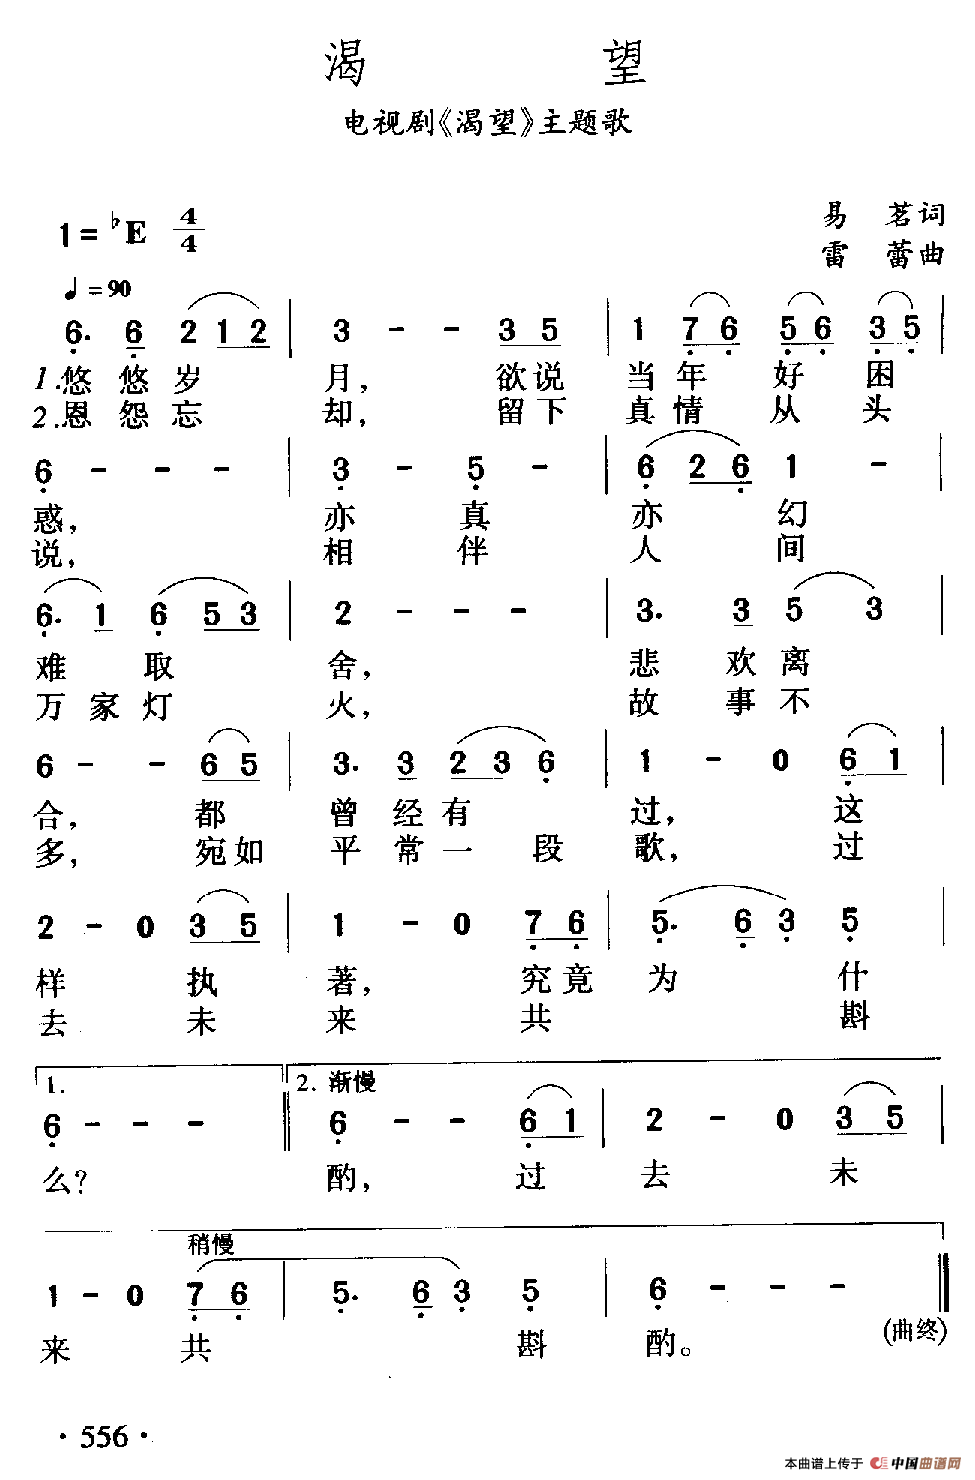 渴 望
电视剧《渴望》主题歌
1=♭E 4/4
易 茗词
雷 蕾曲
♩=90
6. 6 2 1 2 | 3 - - 3 5 | 1 7 6 5 6 3 5 |
1.悠悠岁 月, 欲说 当年 好 困
2.恩怨忘 却, 留下 真情 从 头
6 - - - | 3 - 5 - | 6 2 6 1 - |
惑, 亦 真 亦 幻
说, 相 伴 人 间
6. 1 6 5 3 | 2 - - - | 3. 3 5 3 |
难 取 舍, 悲 欢 离
万 家 灯 火, 故 事 不
6 - - 6 5 | 3. 3 2 3 6 | 1 - 0 6 1 |
合, 都 曾 经 有 过, 这
多, 宛如 平 常 一 段 歌, 过
2 - 0 3 5 | 1 - 0 7 6 | 5. 6 3 5 |
样 执 著, 究竟 为 什
去 未 来 共 斟
1. 2. 渐慢
6 - - - ‖ 6 - - 6 1 | 2 - 0 3 5 |
么? 酌, 过 去 未
稍慢
1 - 0 7 6 | 5. 6 3 5 | 6 - - - ‖
来 共 斟 酌。 (曲终)
· 556 ·
本曲谱上传于 中国曲谱网